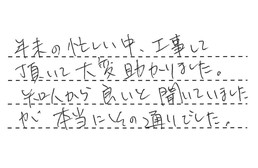 年末の忙しい中、工事して
頂いて大変助かりました。
知人から良いと聞いていました
が本当にその通りでした。